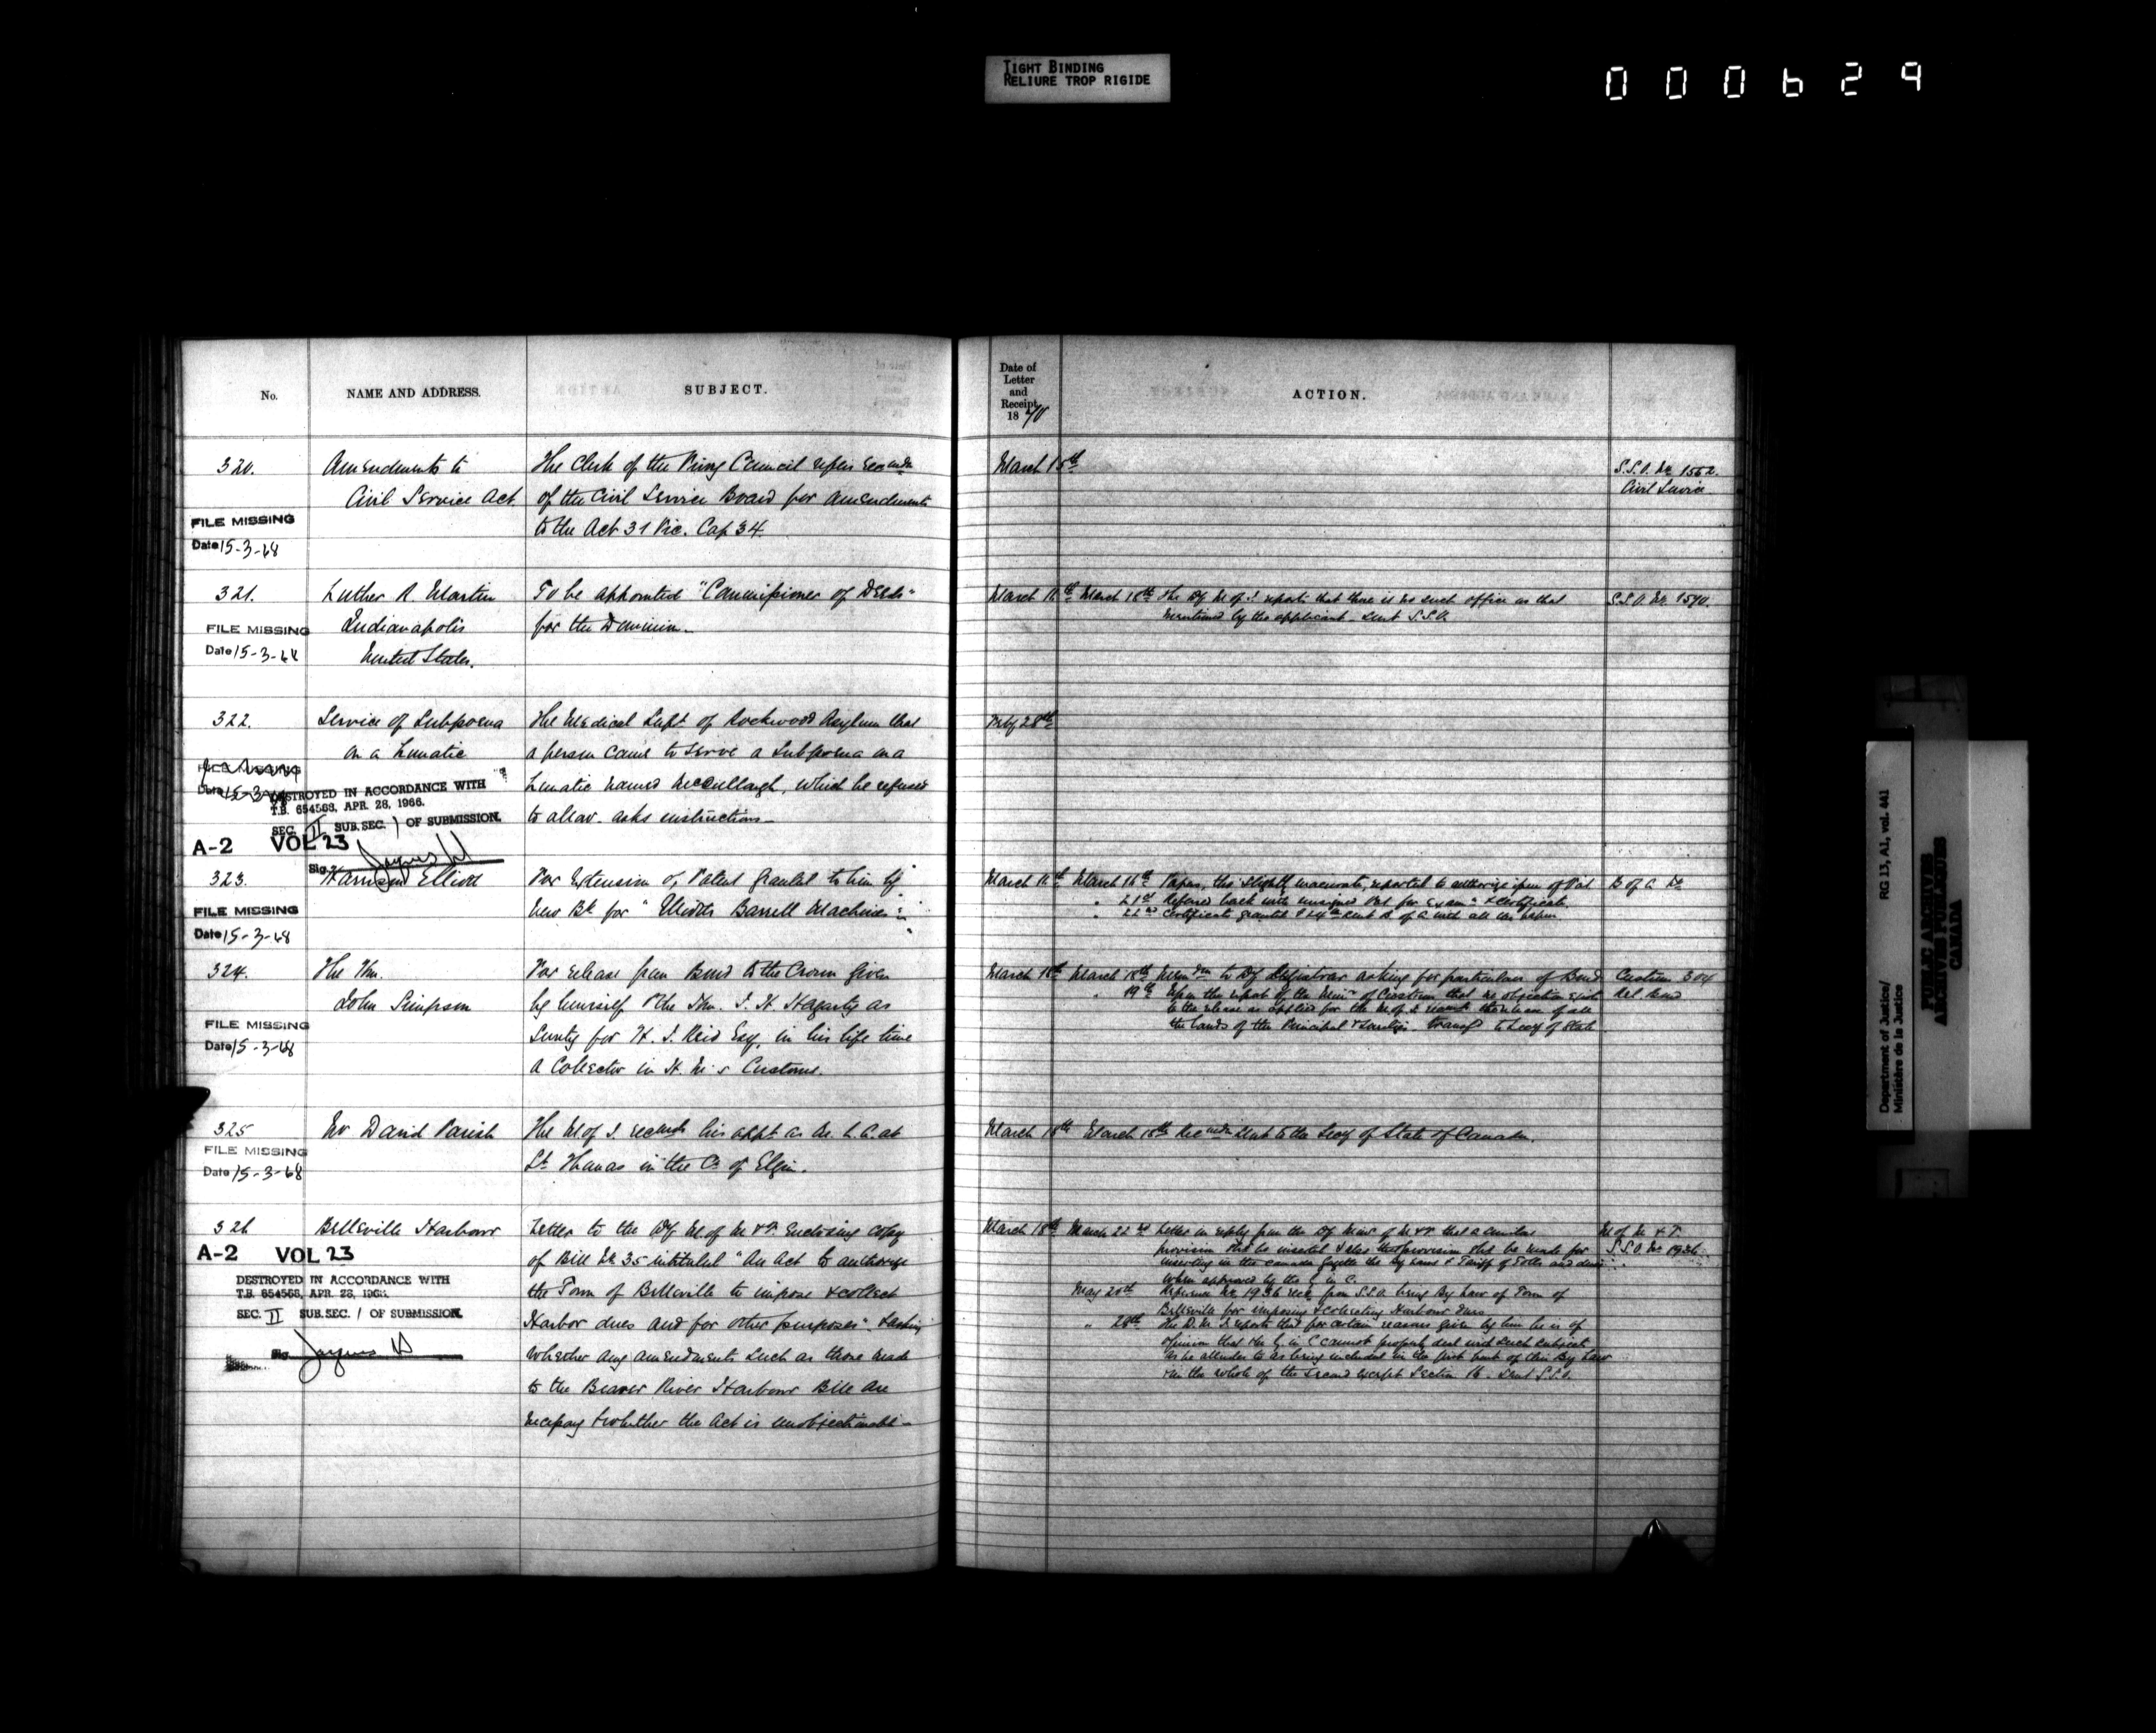 TIGHT BINDING
RELIURE TROP RIGIDE
000629
No.
NAME AND ADDRESS.
SUBJECT.
Date of
Letter
and
Receipt
18 70
ACTION.
320.
Amendments to
Civil Service Act.
FILE MISSING
Date 15-3-68
The Clerk of the Privy Council refers
of the Civil Service Board for amendments
to the Act 31 Vic. Cap 34.
March 15th
S.S.O. No 1552.
Civil Service
321.
Luther R. Martin
Indianapolis
United States.
FILE MISSING
Date 15-3-68
To be appointed "Commissioner of Deeds"
for the Dominion.
March 18th The Dy M. of J. reports that there is no such office as that
mentioned by the applicant. Sent S.S.O.
S.S.O. No. 1590.
322.
Service of Subpoena
on a Lunatic
FILE MISSING
Date 15-3-68
DESTROYED IN ACCORDANCE WITH
T.B. 654568, APR. 28, 1966.
SEC. II SUB.SEC. 1 OF SUBMISSION.
A-2 VOL 23
Sig.
The Medical Supt of Rockwood Asylum that
a person came to serve a Subpoena on a
Lunatic named McCullough, which he refused
to allow. asks instructions
28th
323.
Harrison Elliott
FILE MISSING
Date 15-3-68
For Extension of Patent granted to him by
New Bk for " Barrell Machines"
March
Papers, tho' slightly inaccurate, reported to authorize issue of Pat
" 21st Referred back with unsigned Pat for Examn & certificate.
" 22nd Certificate granted & 24th sent B. of A. with all the papers
B of A
324.
The Hon.
John Simpson
FILE MISSING
Date 15-3-68
For release from Bond to the Crown given
by himself & the Hon. J. H. Hagarty as
Surety for H. J. Reid Esq. in his life time
a Collector in H. M's Customs.
March 18th
March 18th Memdm to Dy Registrar asking for particulars of Bond
" 19th Upon the report of the Minr of Customs that no objection exist
to the release as applied for the M. of J. the release of all
the lands of the Principal & Sureties. to Secy of State
Customs 304
Rel Bond
325
Mr David Parish
FILE MISSING
Date 15-3-68
The M. of J. recomds his appt. as M. L. C. at
St. Thomas in the Co of Elgin.
March 18th
March 18th sent to the Secy of State of Canada.
326
Belleville Harbour
A-2 VOL 23
DESTROYED IN ACCORDANCE WITH
T.B. 654568, APR. 28, 1966.
SEC. II SUB.SEC. 1 OF SUBMISSION.
Sig.
Letter to the Dy M. of M. & F. Enclosing Copy
of Bill No 35 intituled "An Act to authorize
the Town of Belleville to impose & collect
Harbor dues and for other purposes" & asking
Whether any amendments such as those made
to the Beaver River Harbour Bill are
necessary & whether the Act is unobjectionable
March 18th
March 22nd Letter in reply from the Dy Minr of M. & F. that a similar
provision shd be inserted & also that provision shd be made for
inserting in the Canada Gazette the By Laws & Tariff of Tolls and dues
when approved by the G. in C.
May 20th Reference No 1936 recd from S.S.O. being By Law of Town of
Belleville for imposing & collecting Harbour Dues
" 28th The D. M. J. reports that for certain reasons given by him he is of
opinion that the G. in C. cannot properly deal with such subject
as he alludes to as being included in the first part of this By Law
& in the whole of the second except Section 16. Sent S.S.O.
M. of M. & F.
S.S.O. No 1936.
Department of Justice/
Ministère de la Justice
RG 13, A1, vol. 441
PUBLIC ARCHIVES
ARCHIVES PUBLIQUES
CANADA